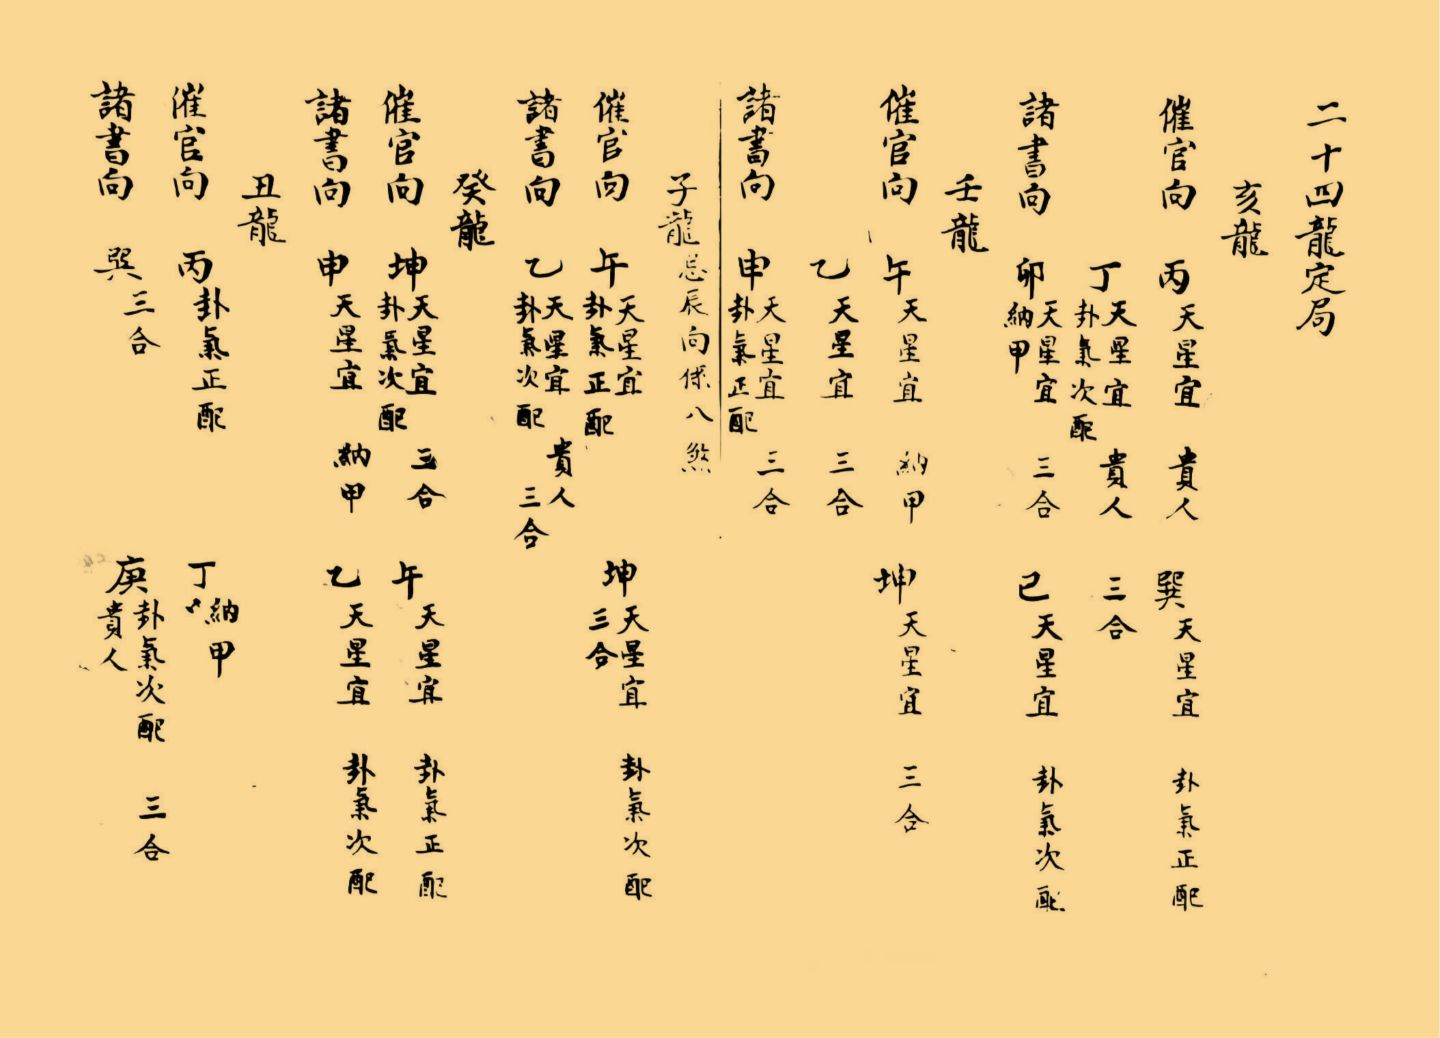 二十四龍定局
亥龍
催官向 丙 天星宜 貴人 巽 天星宜 卦氣正配
丁 天星宜 卦氣次配 貴人 三合
諸書向 卯 天星宜 納甲 三合 巳 天星宜 卦氣次配
壬龍
催官向 午 天星宜 納甲 坤 天星宜 三合
乙 天星宜 三合
諸書向 申 天星宜 卦氣正配 三合
子龍 忌辰向係八煞
催官向 午 天星宜 卦氣正配 坤 天星宜 三合 卦氣次配
諸書向 乙 天星宜 卦氣次配 貴人 三合
癸龍
催官向 坤 天星宜 卦氣次配 三合 午 天星宜 卦氣正配
諸書向 申 天星宜 納甲 乙 天星宜 卦氣次配
丑龍
催官向 丙 卦氣正配 丁 納甲
諸書向 巽 三合 庚 卦氣次配 貴人 三合